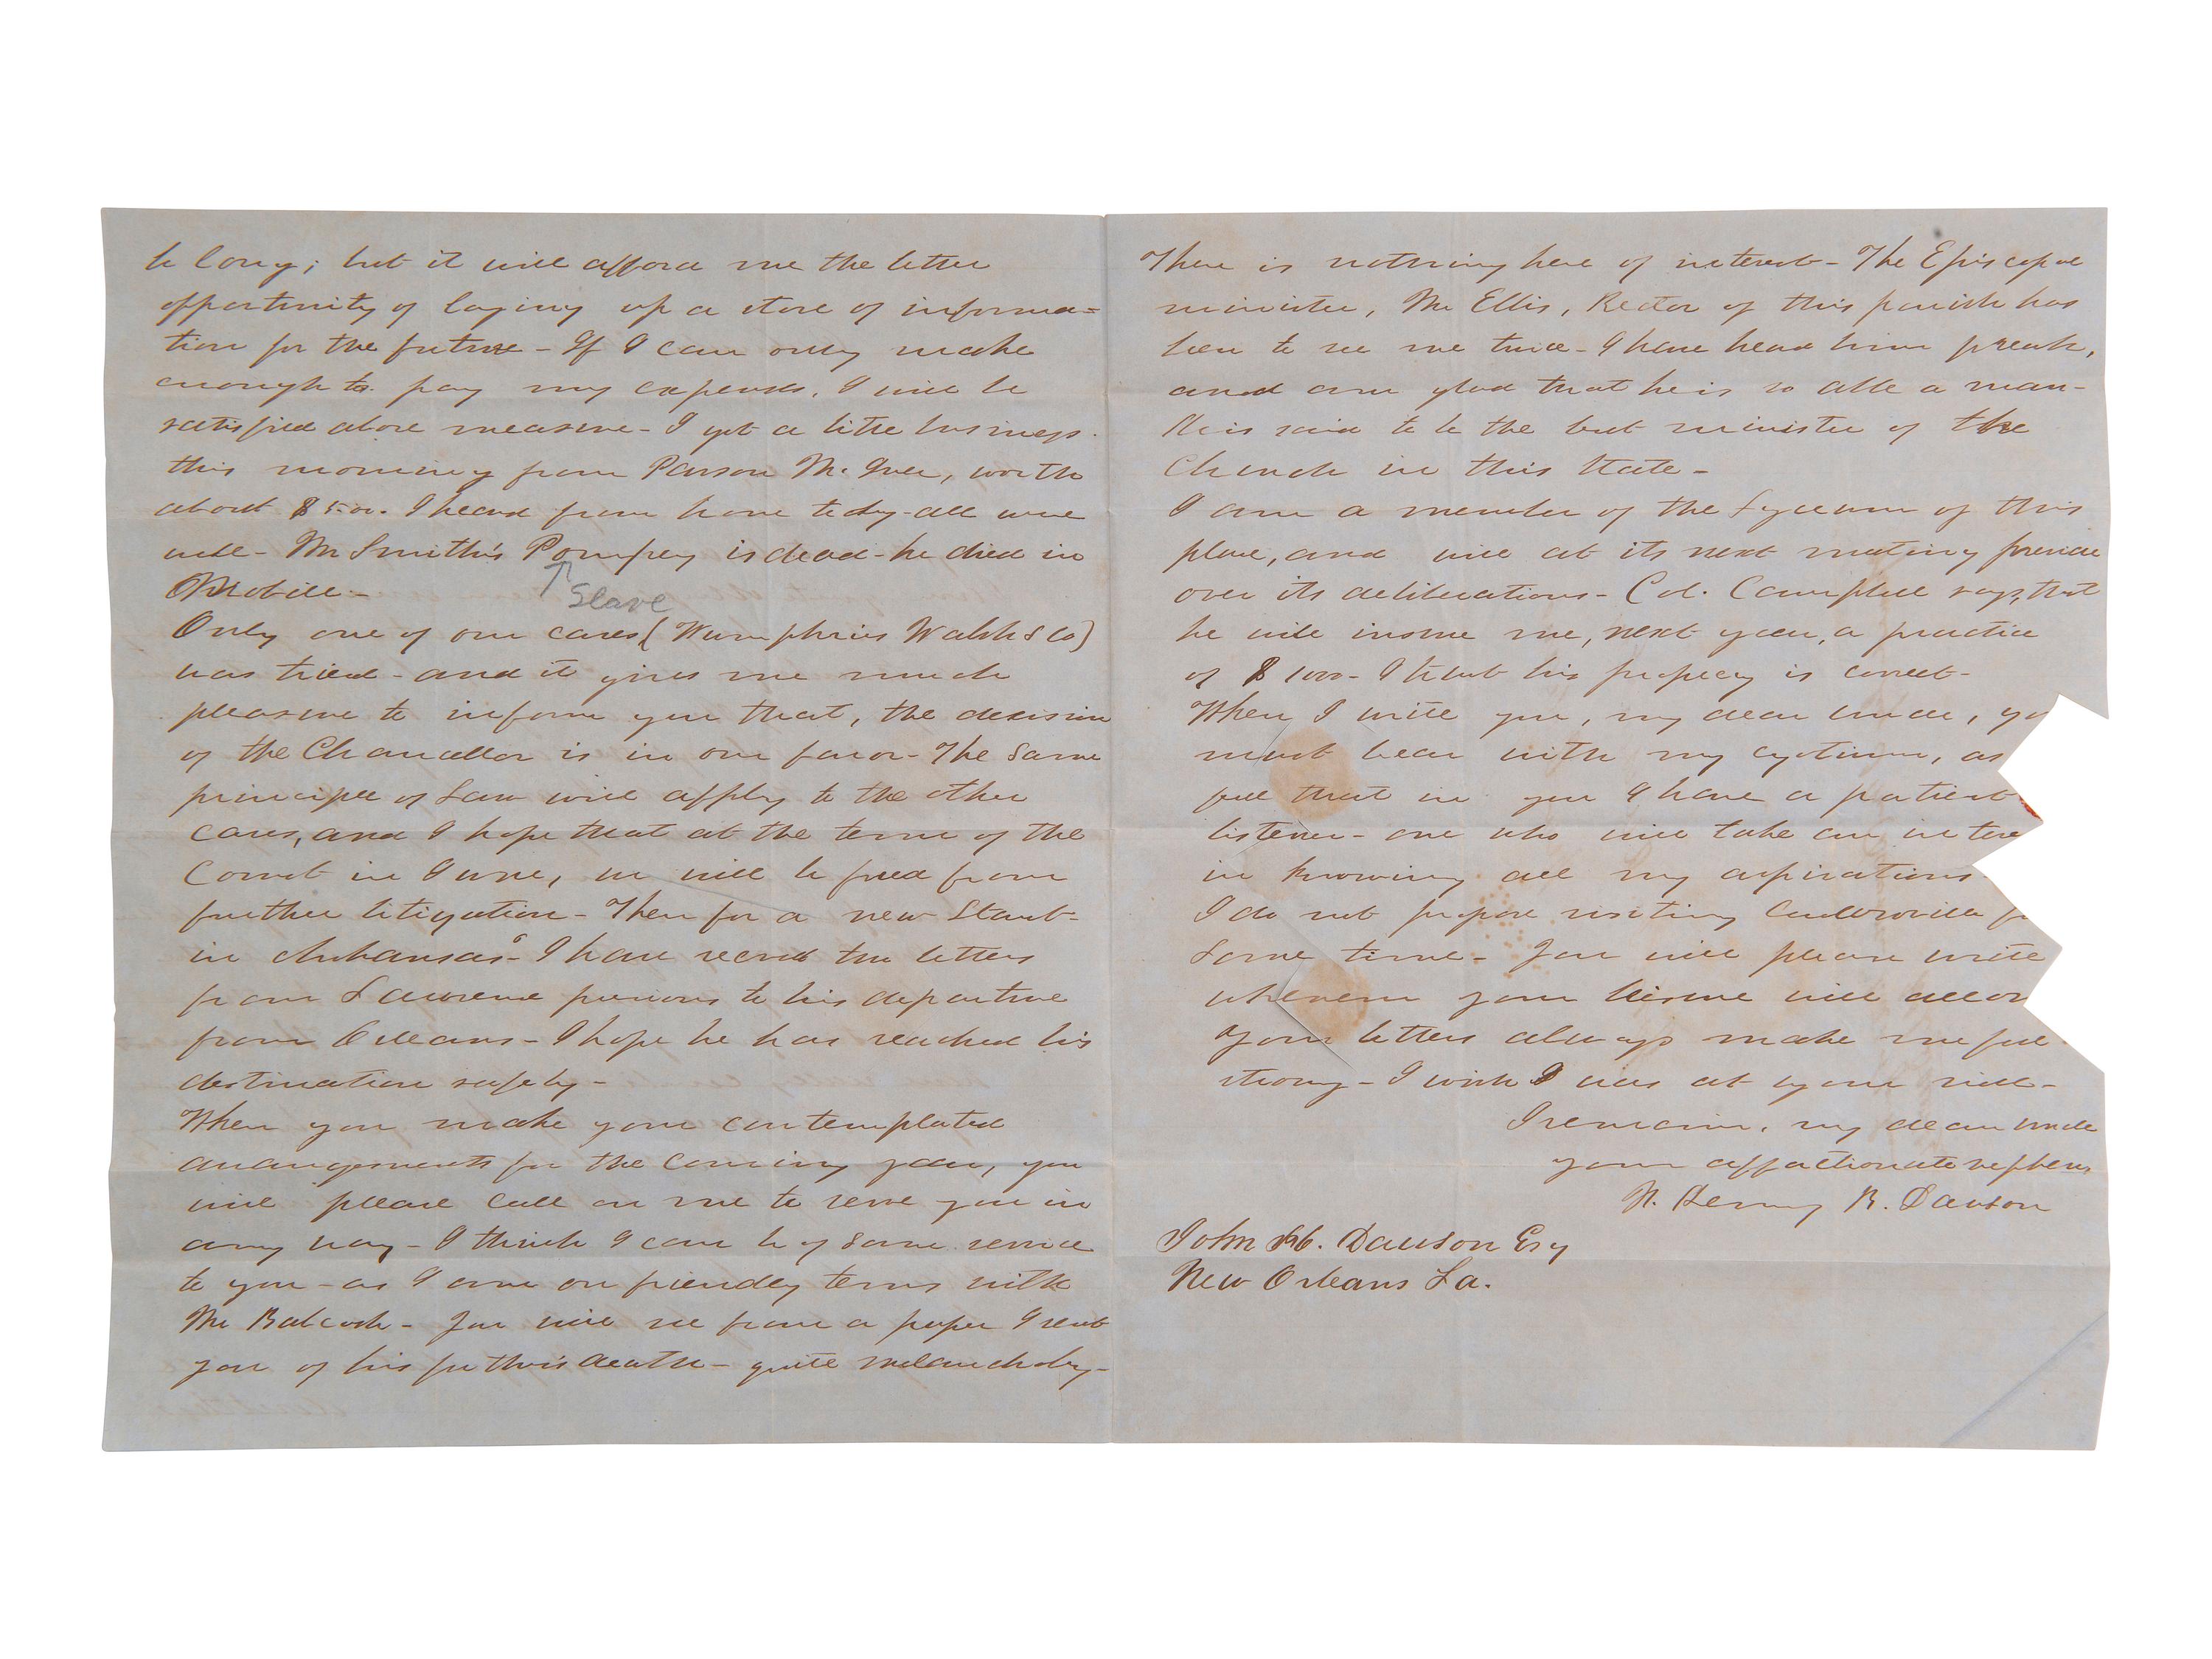 be long; but it will afford me the better
opportunity of laying up a store of informa=
tion for the future - If I can only make
enough to pay my expenses, I will be
satisfied above measure - I got a little business
this morning from Parson Mc. Iver, worth
about $500. I heard from home to day - all were
well - Mr Smith's Pompey is dead - he died in
Mobile -
Slave
Only one of our cases (Humphries Walsh & Co)
was tried - and it gives me much
pleasure to inform you that, the decision
of the Chancellor is in our favor - The same
principle of Law will apply to the other
cases, and I hope that at the term of the
Court in June, we will be freed from
further litigation - Then for a new Start -
in Arkansas - I have recvd two letters
from Lawrence previous to his departure
from Orleans - I hope he has reached his
destination safely -
When you make your contemplated
arrangements for the coming year, you
will please call on me to serve you in
any way - I think I can be of some service
to you - as I am on friendly terms with
Mr Babcock - You will see from a paper I sent
you of his father's death - quite melancholy -
There is nothing here of interest - The Episcopal
minister, Mr Ellis, Rector of this parish has
been to see me twice - I have heard him preach,
and am glad that he is so able a man -
He is said to be the best minister of the
Church in this State -
I am a member of the Lyceum of this
place, and will at its next meeting preside
over its deliberations - Col. Campbell says, that
he will insure me, next year, a practice
of $1000 - I trust his propecy is correct -
When I write you, my dear Uncle, yo
must bear with my egotism, as
feel that in you I have a patient
listener - one who will take an inter
in knowing all my aspirations
I do not propose visiting
some time - You will please write
whenever your leisure will allow
Your letters always make me feel
strong - I wish I was at your side -
I remain, my dear Uncle
your affactionate nephew
N. Henry R. Dawson
John Dawson Esq
New Orleans La.